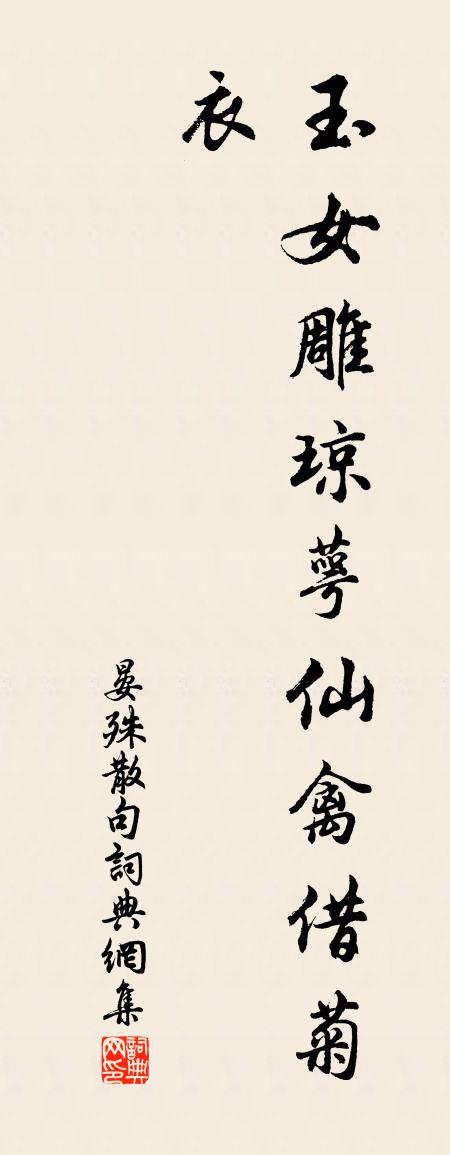 玉女雕琼萼仙禽借菊
衣
晏殊散句詞典網集
詞典
网印